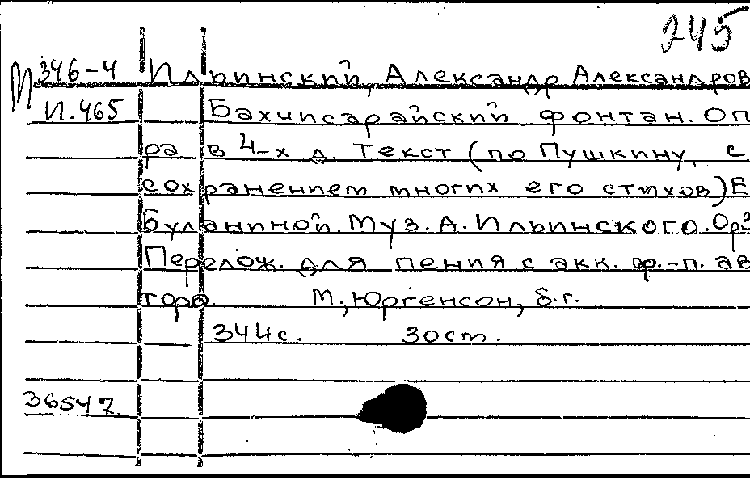 245
М 346-4 Ильинский, Александр Александров
И.465 Бахчисарайский фонтан. Оп
ра в 4-х д. Текст (по Пушкину, с
сохранением многих его стихов) Е
Буланиной. Муз. А. Ильинского. Ор
Перелож. для пения с акк. ф.-п. ав
тора. М., Юргенсон, б.г.
344с. 30см.
36547